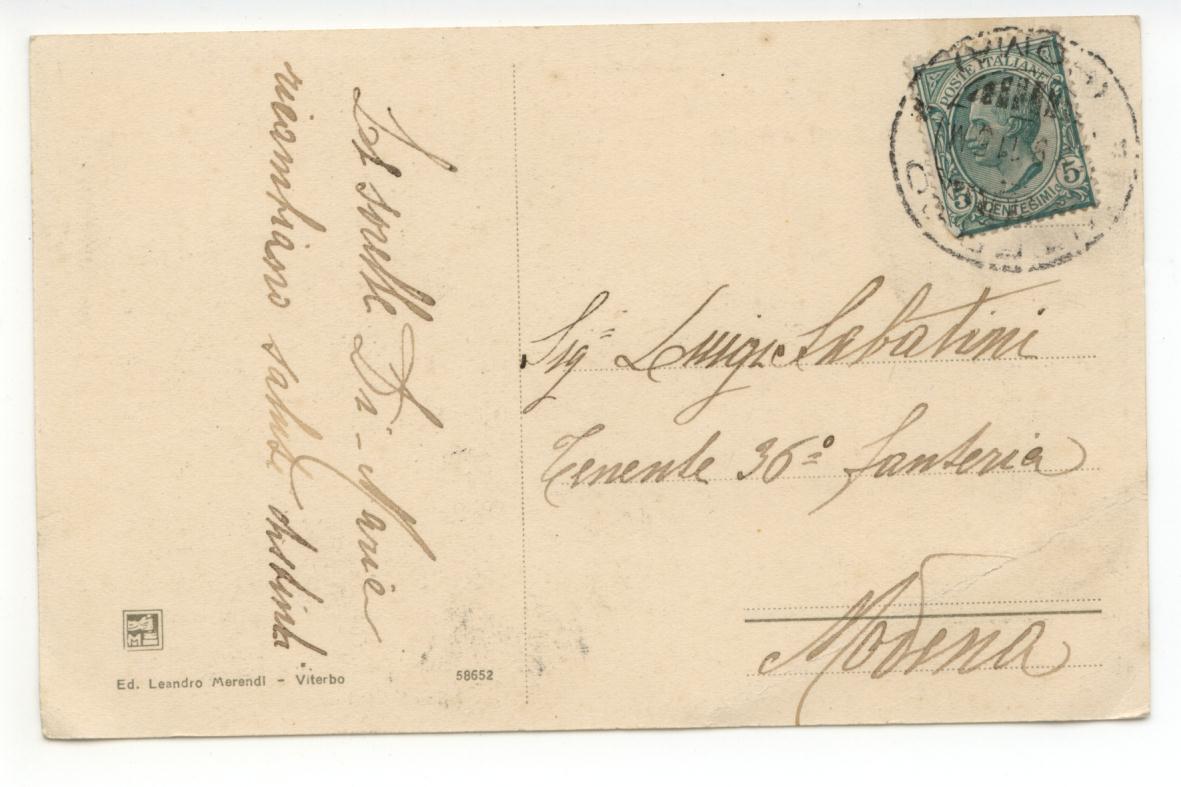 Le sorelle Di-Maria
ricambiano saluti distinti.
POSTE ITALIANE
5 CENTESIMI 5
(ROMA)
Sig.= Luigi Sabatini
Tenente 36.º fanteria
Modena
Ed. Leandro Merendi - Viterbo
58652